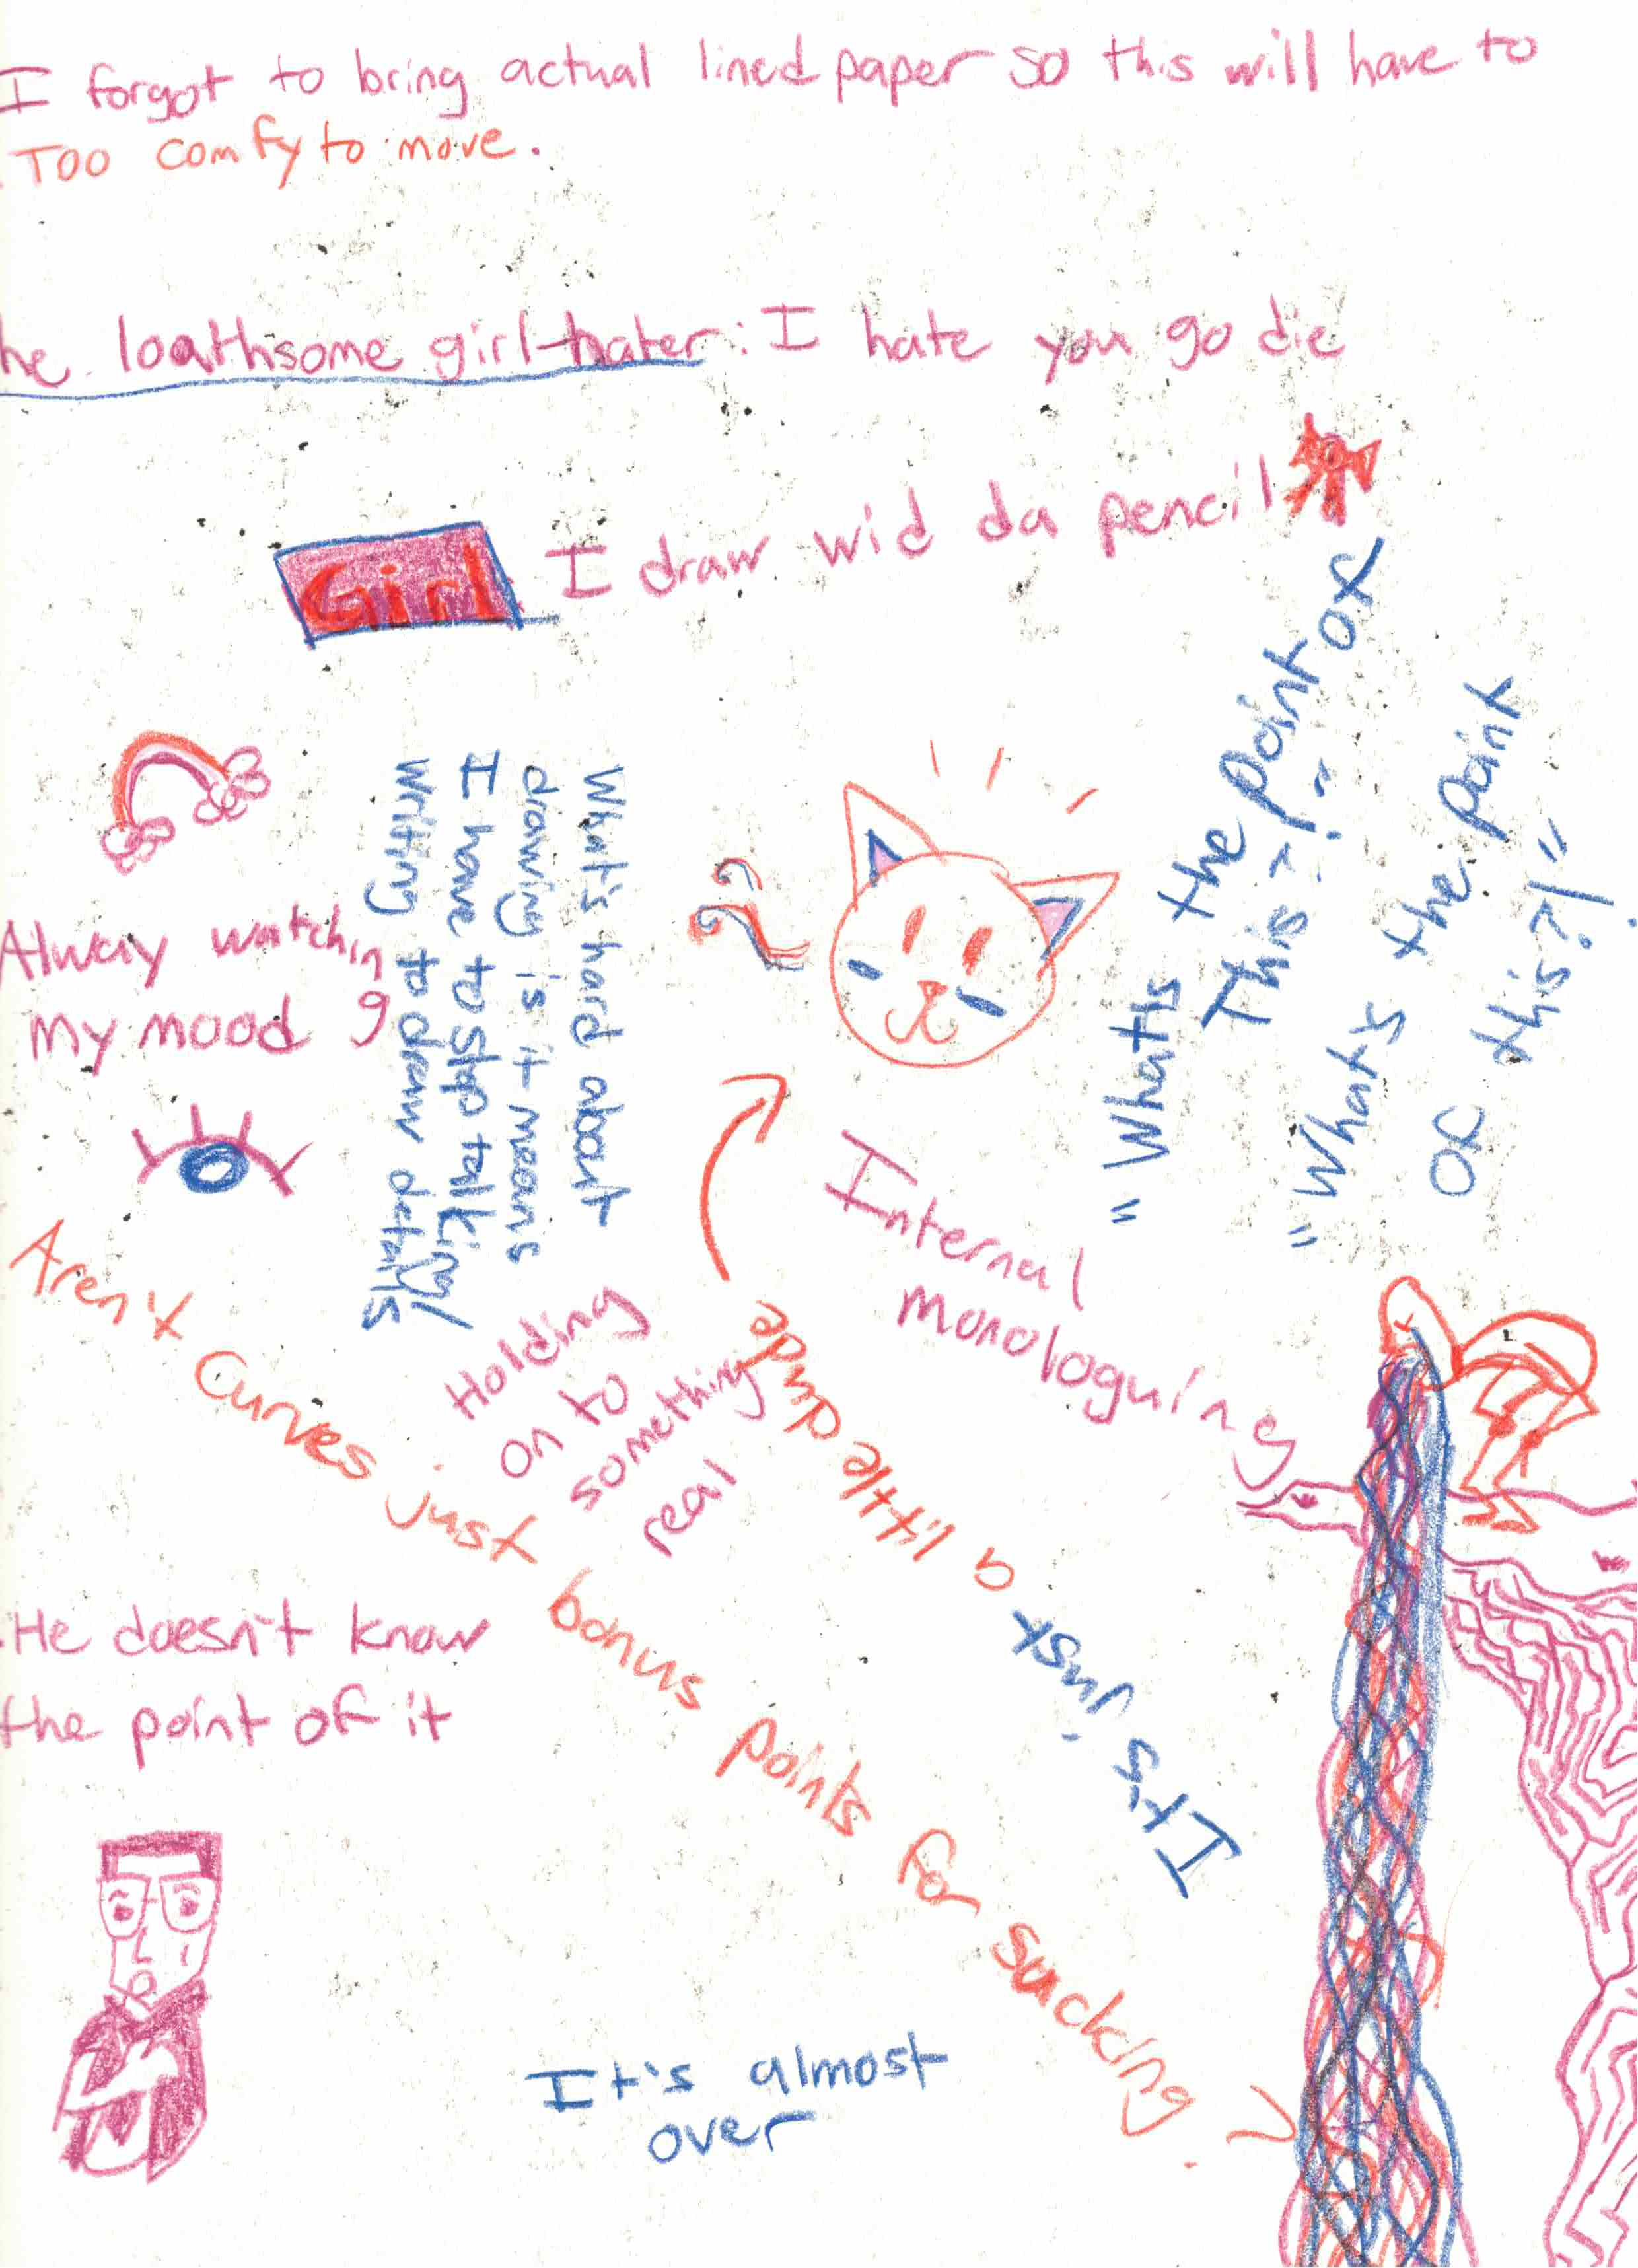 I forgot to bring actual lined paper so this will have to
. Too comfy to move.
he loathsome girl-hater: I hate you go die
Girl: I draw wid da pencil
"What's the point of
This?!"
"What's the point
of this?!"
What's hard about
drawing is it means
I have to stop talking/
writing to draw details
Alway watching
my mood
Internal
monologuing
Holding
on to
something
real
It's just a little dude
Aren't Curves just bonus points for sucking?
He doesn't know
the point of it
It's almost
over